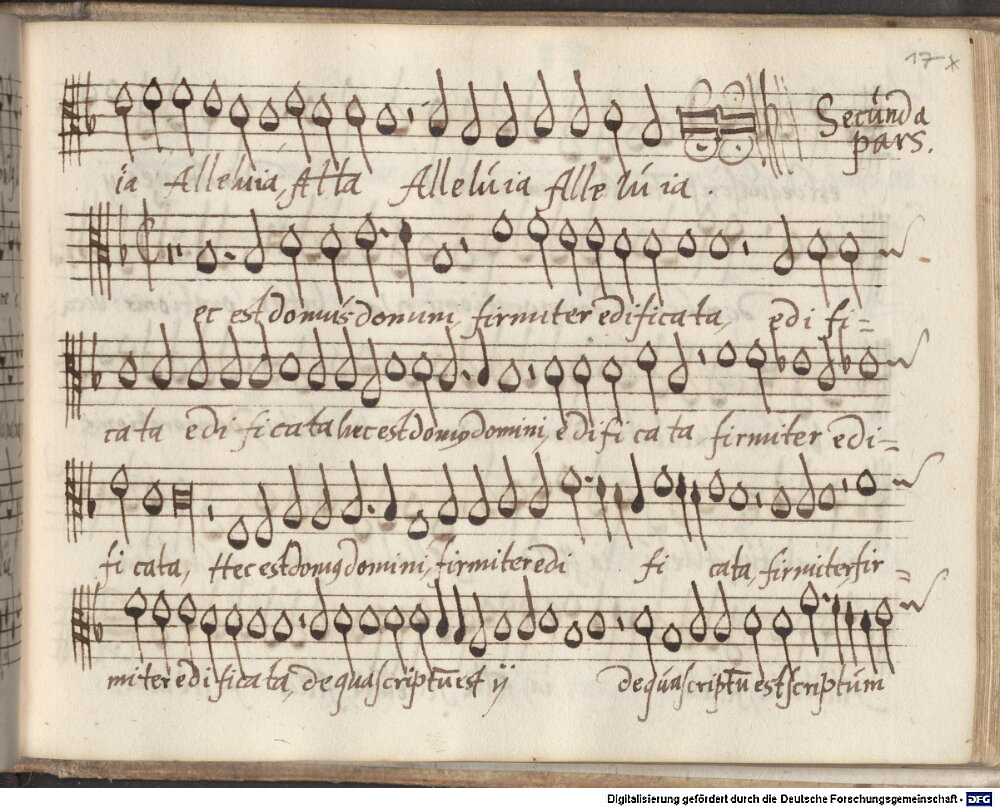 17 x
Secúnda
pars.
ia Alleluia, Alla Allelúia Allelúia.
ec est domús domini, firmiter edificata, edi fi=
cata edi ficata hec est domus domini, edificata firmiter edi=
ficata, Hec est domus domini, firmiter edi fi cata, firmiter fir=
miter edificata, de qua scriptū est ij de qúa scriptū est scriptúm
Digitalisierung gefördert durch die Deutsche Forschungsgemeinschaft - DFG